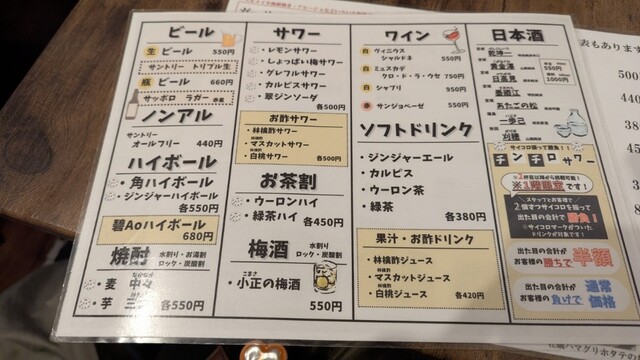 ビール
生 ビール 550円
サントリー トリプル生
瓶 ビール 660円
サッポロ ラガー 赤星
ノンアル
サントリー
オールフリー 440円
ハイボール
・角ハイボール
・ジンジャーハイボール
各550円
碧Aoハイボール
680円
焼酎 水割り・お湯割
ロック・炭酸割
・麦 中々
・芋 各550円
サワー
・レモンサワー
・しょっぱい梅サワー
・グレフルサワー
・カルピスサワー
・翠ジンソーダ
各500円
お酢サワー
・林檎酢サワー
・マスカットサワー
・白桃サワー 各500円
お茶割
・ウーロンハイ
・緑茶ハイ 各450円
梅酒 水割り
ロック・炭酸割
・小正の梅酒
550円
ワイン
白 ヴィニウス
シャルドネ 550円
白 ミュスカデ
クロ・ド・ラ・ウセ 750円
白 シャブリ 950円
赤 サンジョベーゼ 550円
ソフトドリンク
・ジンジャーエール
・カルピス
・ウーロン茶
・緑茶
各380円
果汁・お酢ドリンク
・林檎酢ジュース
・マスカットジュース
・白桃ジュース 各420円
日本酒
乾坤一
黄金澤
日高見
墨廼江
あたごの松
一歩己
刈穂
550円
1000円
サイコロ振って勝負!
チンチロサワー
※2杯目以降から挑戦可能!
※1階限定です!
スタッフとお客様で
2個ずつサイコロを振って
出た目の合計で勝負!
※サイコロマークがついた
ドリンクが対象です!
出た目の合計が
お客様の勝ちで半額
出た目の合計が
お客様の負けで通常
価格
表もあります
500